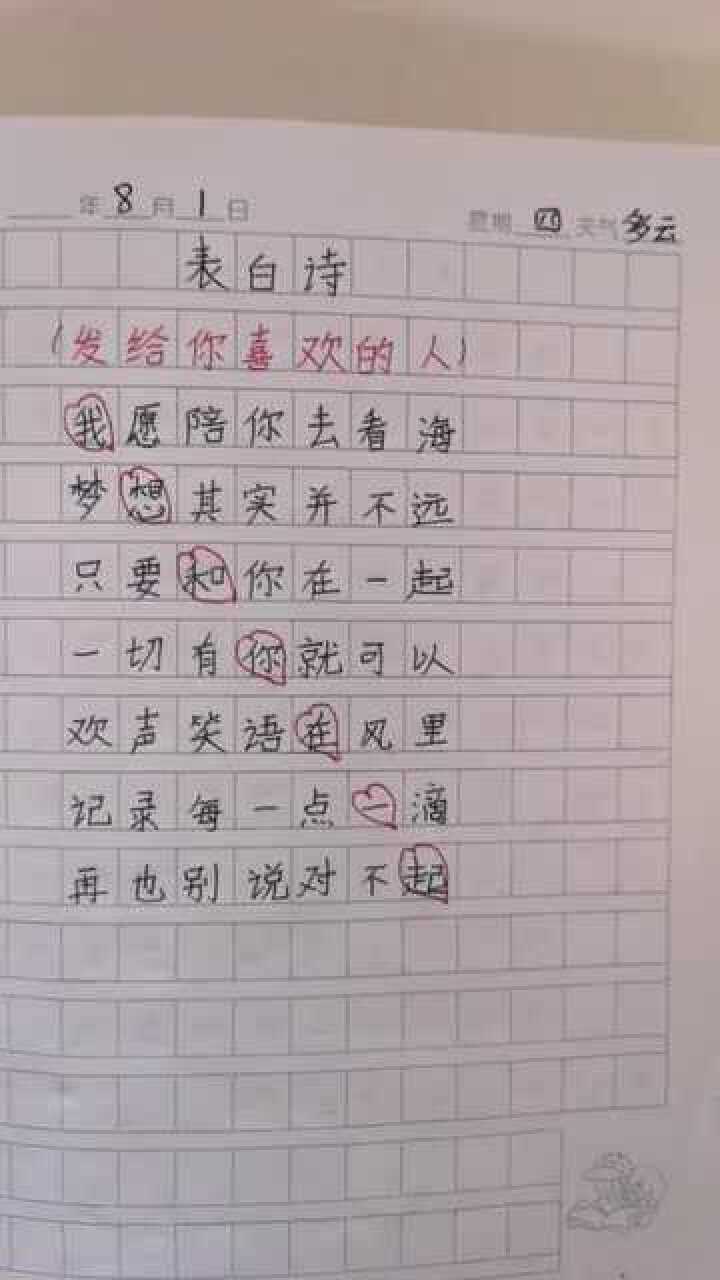 年8月1日 星期四天气多云
表白诗
(发给你喜欢的人)
我愿陪你去看海
梦想其实并不远
只要和你在一起
一切有你就可以
欢声笑语在风里
记录每一点一滴
再也别说对不起